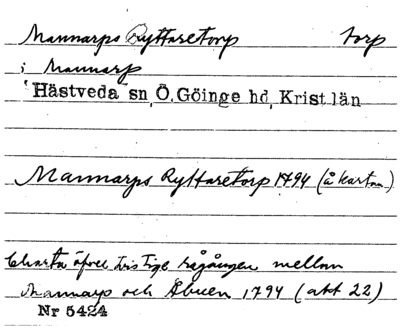 Mannarps Ryttaretorp torp
i Mannarp
Hästveda sn, Ö. Göinge hd, Krist. län
Mannarps Ryttaretorp 1794 (å kartan)
Charta öfver tvistige rågången mellan
Mannarp och Åbuen 1794 (akt 22)
Nr 5424